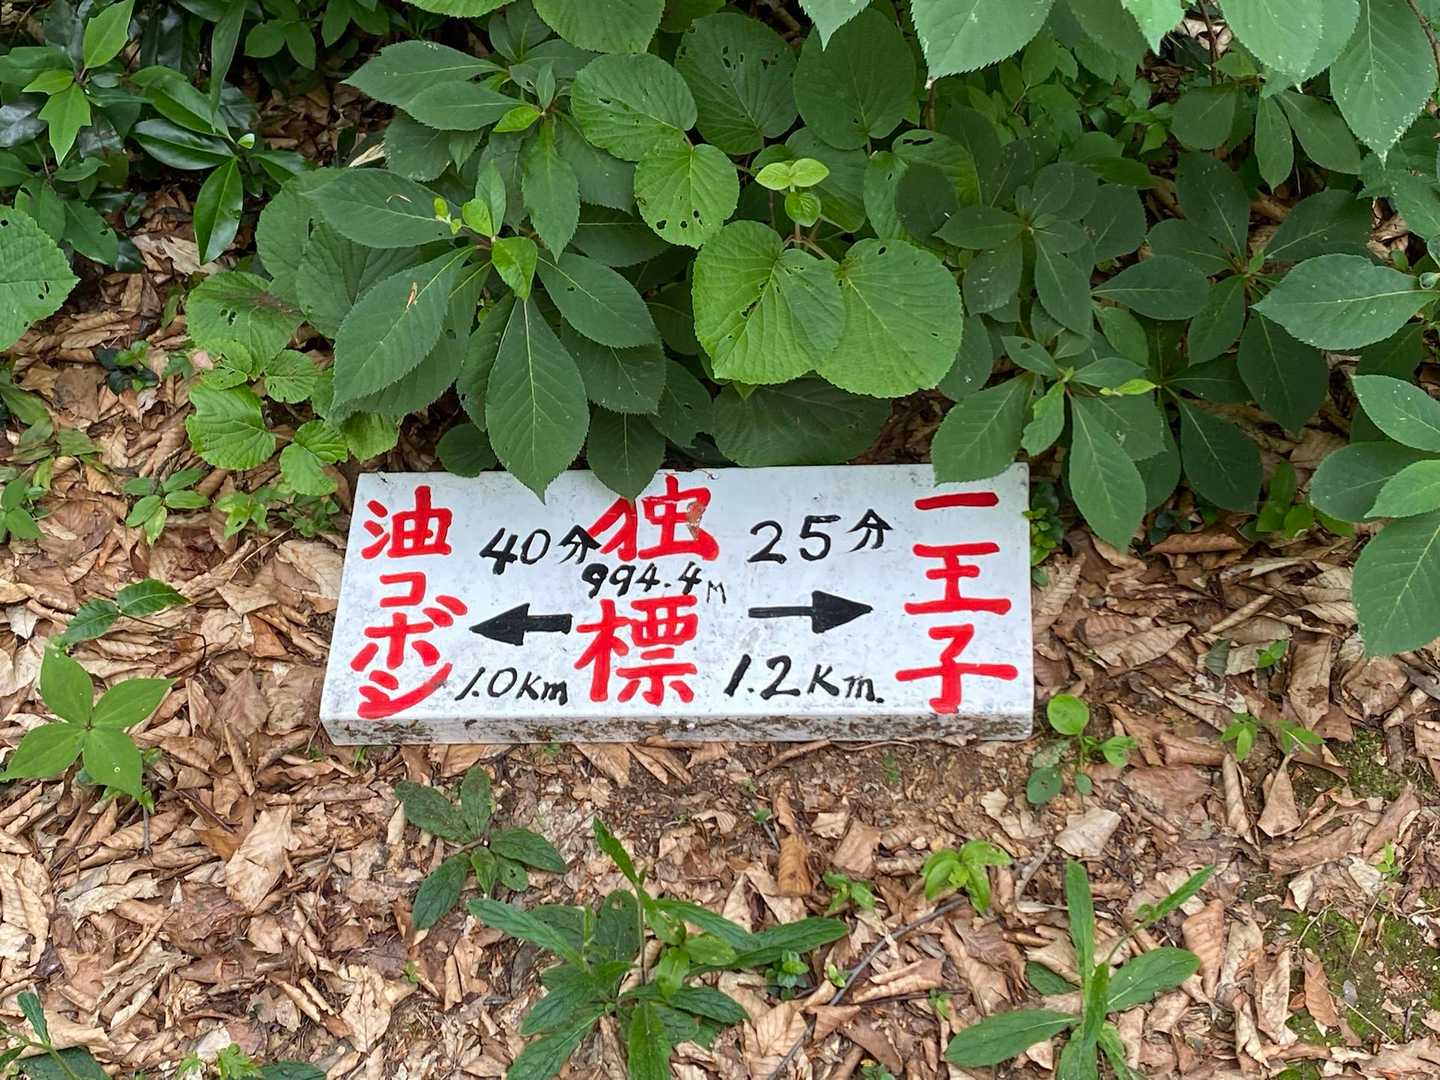 油コボシ
40分
←
1.0Km
独標
994.4M
25分
→
1.2Km.
一王子